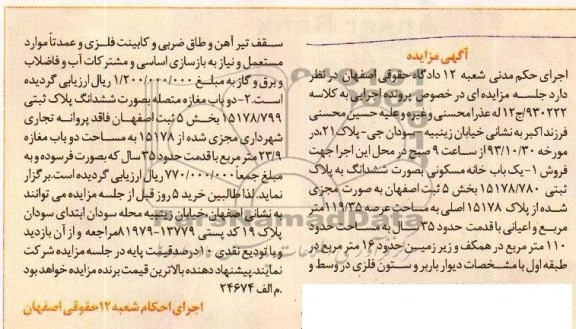 آگهی مزایده
اجرای حکم مدنی شعبه ۱۲ دادگاه حقوقی اصفهان در نظر
دارد جلسه مزایده ای در خصوص پرونده اجرایی به کلاسه
۹۳۰۲۲۲/ج۱۲ له عذرا محسنی و غیره و علیه حسین محسنی
فرزند اکبر به نشانی خیابان زینبیه -سودان جی-پلاک۲۱،در
مورخه ۹۳/۱۰/۳۰ از ساعت ۹ صبح در محل این اجرا جهت
فروش ۱-یک باب خانه مسکونی بصورت ششدانگ به پلاک
ثبتی ۱۵۱۷۸/۷۸۰ بخش ۵ ثبت اصفهان به صورت مجزی
شده از پلاک ۱۵۱۷۸ اصلی به مساحت عرصه ۱۱۹/۳۵متر
مربع و اعیانی با قدمت حدود ۳۵سال به مساحت حدود
۱۱۰ متر مربع در همکف و زیر زمین حدود ۱۶ متر مربع در
طبقه اول با مشخصات دیوار باربر و ستون فلزی در وسط و
سقف تیر آهن و طاق ضربی و کابینت فلزی و عمدتاً موارد
مستعمل و نیاز به بازسازی اساسی و مشترکات آب و فاضلاب
و برق و گاز به مبلغ ۱/۲۰۰/۰۰۰/۰۰۰ ریال ارزیابی گردیده
است.۲-دو باب مغازه متصله بصورت ششدانگ پلاک ثبتی
۱۵۱۷۸/۷۹۹ بخش ۵ ثبت اصفهان فاقد پروانه تجاری
شهرداری مجزی شده از ۱۵۱۷۸ به مساحت دو باب مغازه
۲۳/۹ متر مربع با قدمت حدود ۳۵ سال که بصورت فرسوده و به
مبلغ جمعاً ۷۷۰/۰۰۰/۰۰۰ ریال ارزیابی گردیده است.برگزار
نماید.لذا طالبین خرید ۵ روز قبل از جلسه مزایده می توانند
به نشانی اصفهان،خیابان زینبیه محله سودان ابتدای سودان
پلاک ۱۹ کد پستی ۱۳۷۷۹-۸۱۹۷۹مراجعه و از آن بازدید
و با تودیع نقدی ۱۰درصد قیمت پایه در جلسه مزایده شرکت
نمایند.پیشنهاد دهنده بالاترین قیمت برنده مزایده خواهد بود
.م الف ۲۴۶۷۴
اجرای احکام شعبه ۱۲ حقوقی اصفهان
ParsNamadData